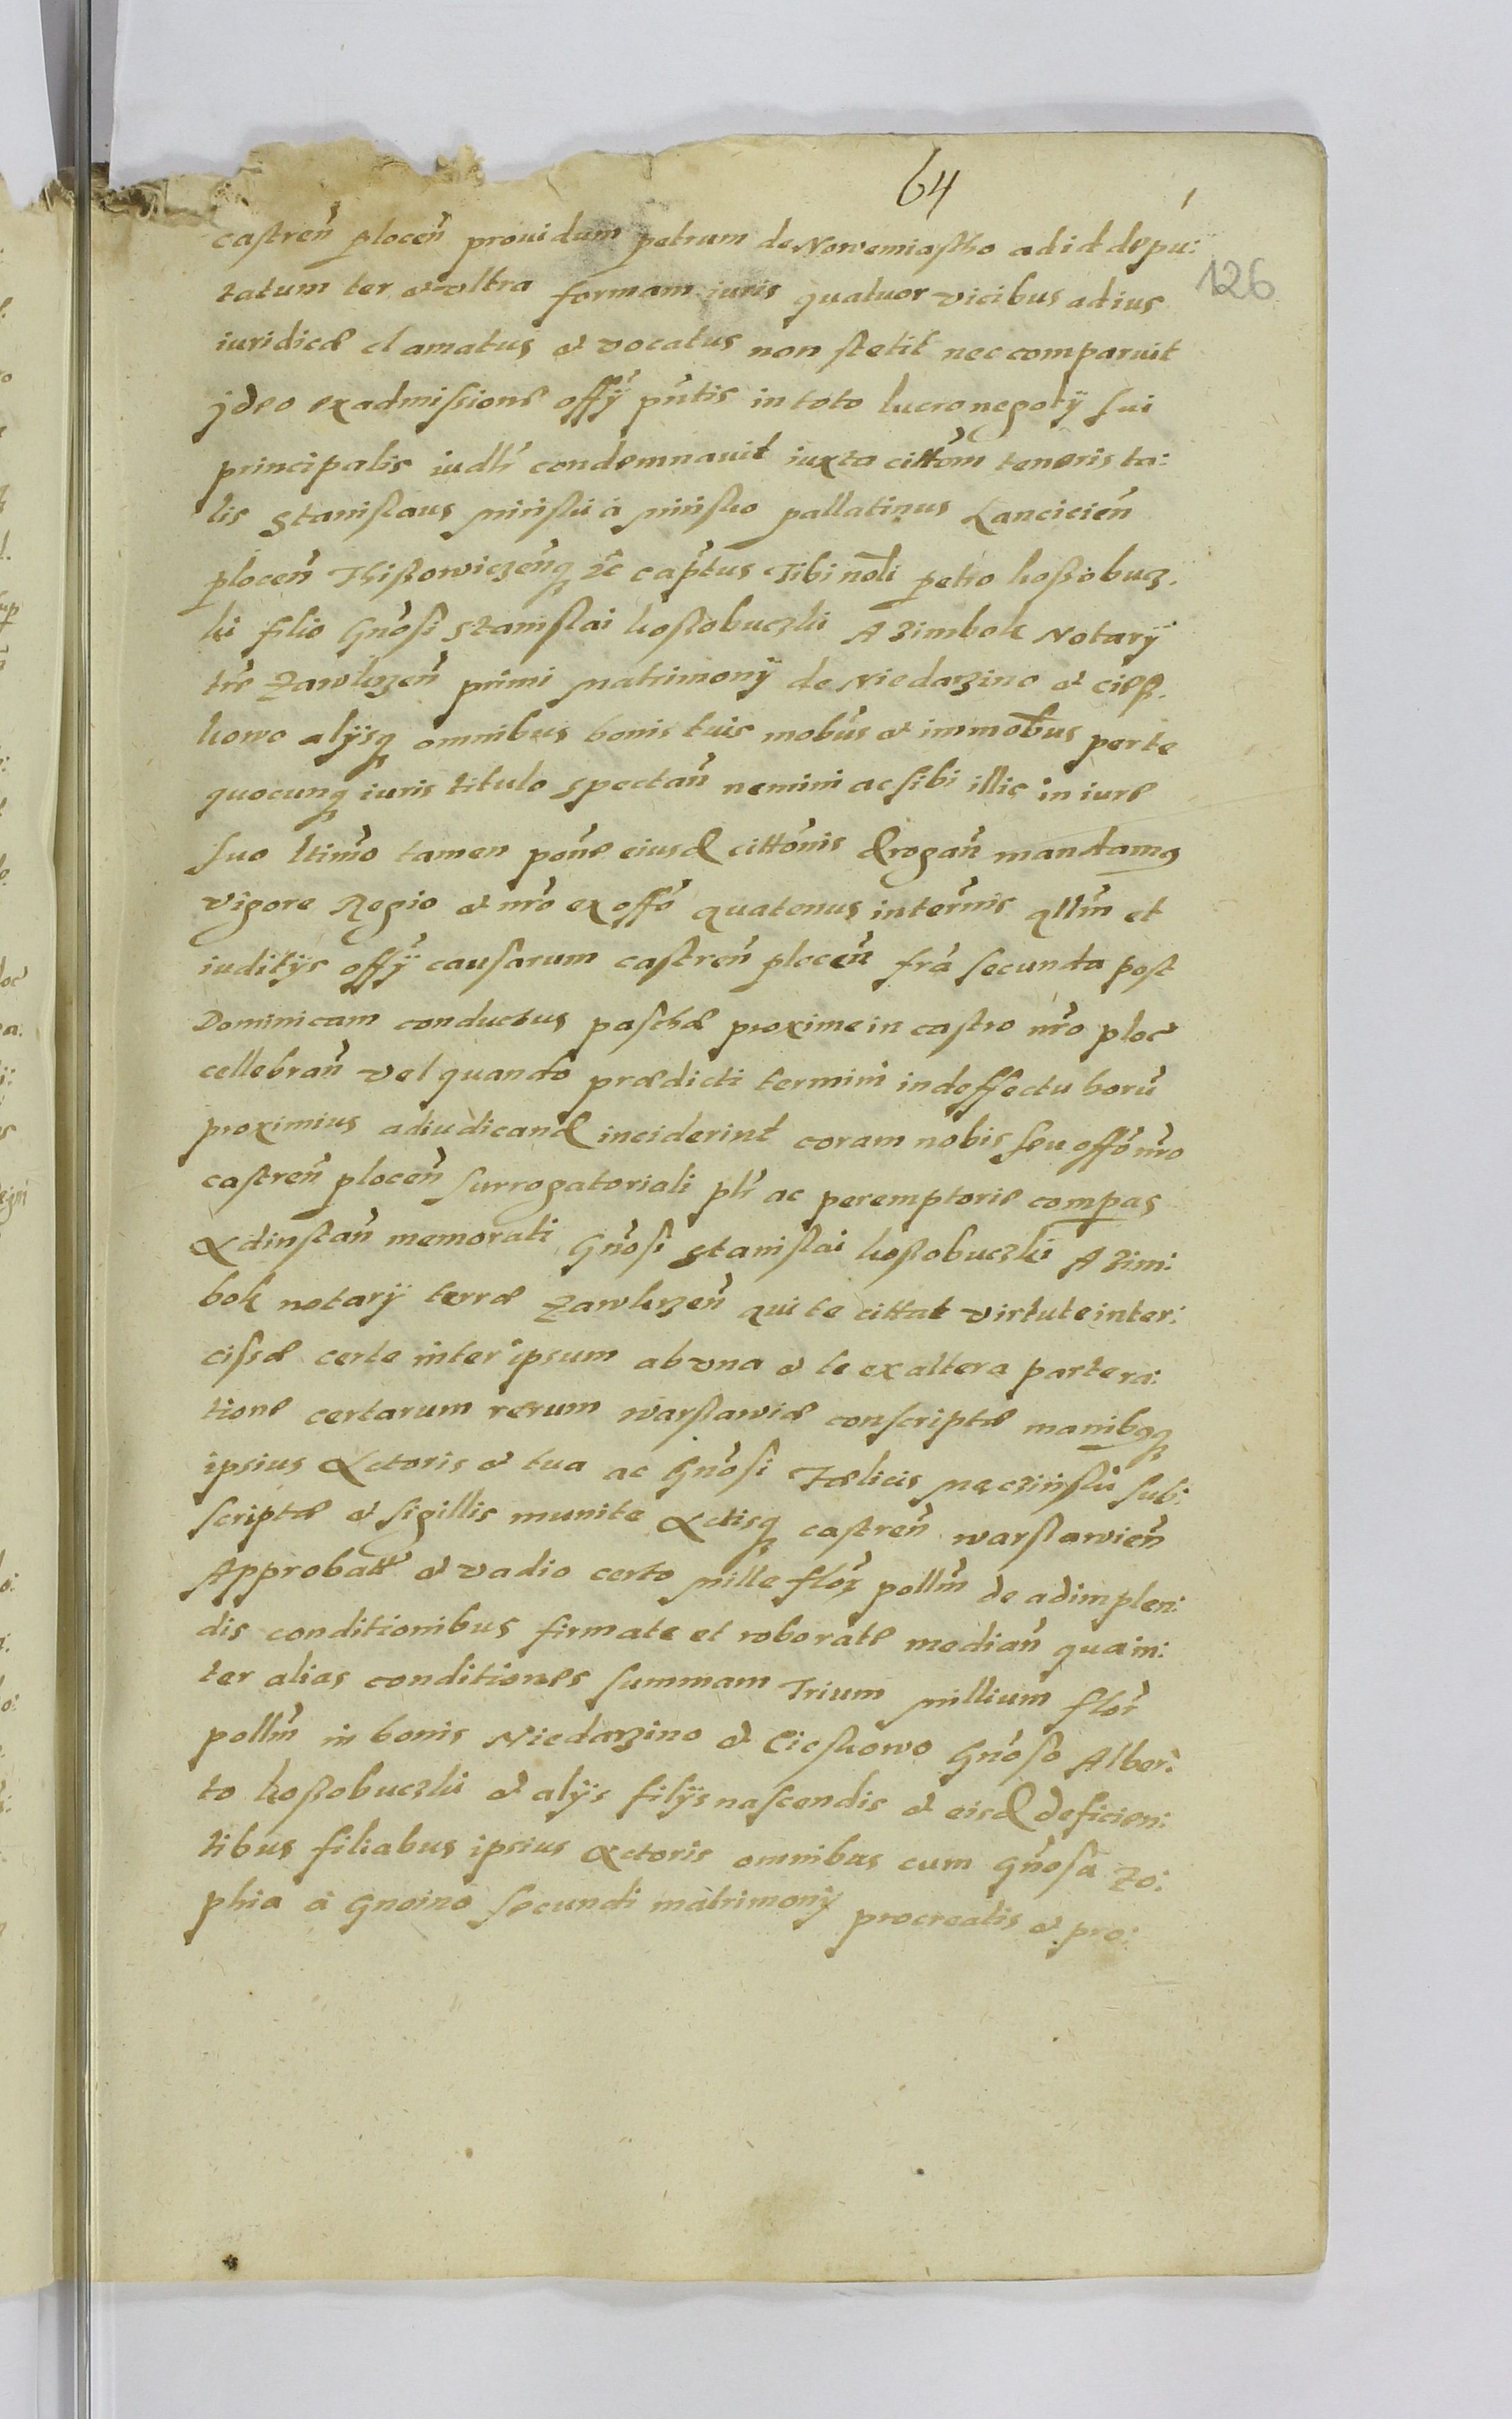 64
castren̄ plocen̄ prouidum petrum de Nowemiastho ad id depu:
126
tatum ter et vltra formam iuris quatuor vicibus ad ius
iuridice clamatus et vocatus non stetit nec comparuit
jdeo ex admissione offÿ pn̄tis in toto lucro negotÿ sui
principalis iudlr̄ condemnauit iuxta cittōm teneris ta:
lis Stanislaus Minski a Minsko pallatinus Lancicien̄
plocen̄ Thiszowiczenq̄ zc̄ cap̄tus Tibi nōli petro koszobucz.
ki filio Gn̄osi Stanislai koszobuczki A Zimbok Notarÿ
trē Zawkrzen̄ primi matrimonÿ de Niedarzino et ciesz.
kowo alÿsq omnibus bonis tuis mobūs et immobūs per te
quocunq iuris titulo spectan̄ nemini ac sibi illis in iure
suo ltīmo tamen pōne eiusd cittōnis drogan̄ mandamꝰ
vigore Regio et nr̄o ex offō quatenus in termīs qllm̄ et
iuditÿs offÿ causarum castren̄ plocen̄ frā secunda post
Dominicam conductus paschæ proxime in castro nr̄o ploc̄
cellebran̄ vel quando prædicti termini in deffectu horū
proximius adiudicand inciderint coram nobis seu offō nr̄o
castren̄ plocen̄ surrogatoriali plr̄ ac peremptorie compas
Ad instan̄ memorati Gn̄osi Stanislai koszobuczki A Zim:
bok notarÿ terræ Zawkrzen̄ qui te cittat virtute inter:
cisæ certe inter ipsum ab vna et te ex altera parte ra:
tione certarum rerum warszawiæ conscriptæ manibꝰq
ipsius Actoris et tua ac Gn̄osi Fælicis subi:
scriptæ et sigillis munite Actisq castren̄ warszawien̄
Approbatt̄ et vadio certo mille flōr pollm̄ de adimplen:
dis conditionibus firmate et roborate median̄ qua in:
ter alias conditiones summam Trium millium flor̄
pollm̄ in bonis Niedarzino et Cieskowo Gn̄oso Alber:
to koszobuczki et alÿs filÿs nascendis et eisd deficien:
tibus filiabus ipsius Actoris omnibus cum gn̄osa Zo:
phia a Gnoino secundi matrimonÿ procreatis et pro: